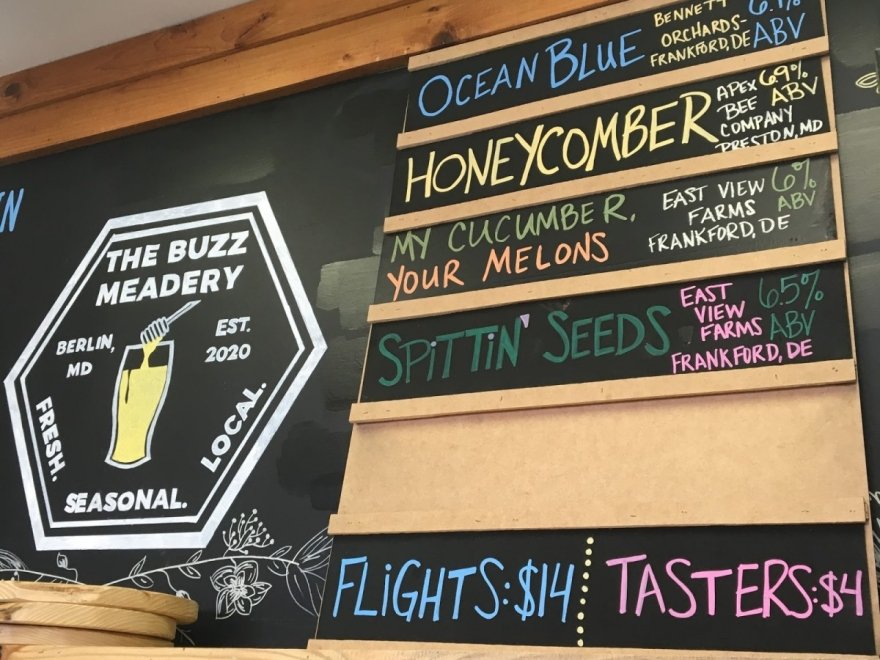 THE BUZZ
MEADERY
BERLIN,
MD
EST.
2020
FRESH.
SEASONAL.
LOCAL.
OCEAN BLUE
BENNETT
ORCHARDS-
FRANKFORD, DE
ABV
HONEYCOMBER
APEX
BEE
COMPANY
PRESTON, MD
6.9%
ABV
MY CUCUMBER,
YOUR MELONS
EAST VIEW
FARMS
FRANKFORD, DE
6%
ABV
SPiTTiN' SEEDS
EAST
VIEW
FARMS
FRANKFORD, DE
6.5%
ABV
FLiGHTS: $14
TASTERS: $4